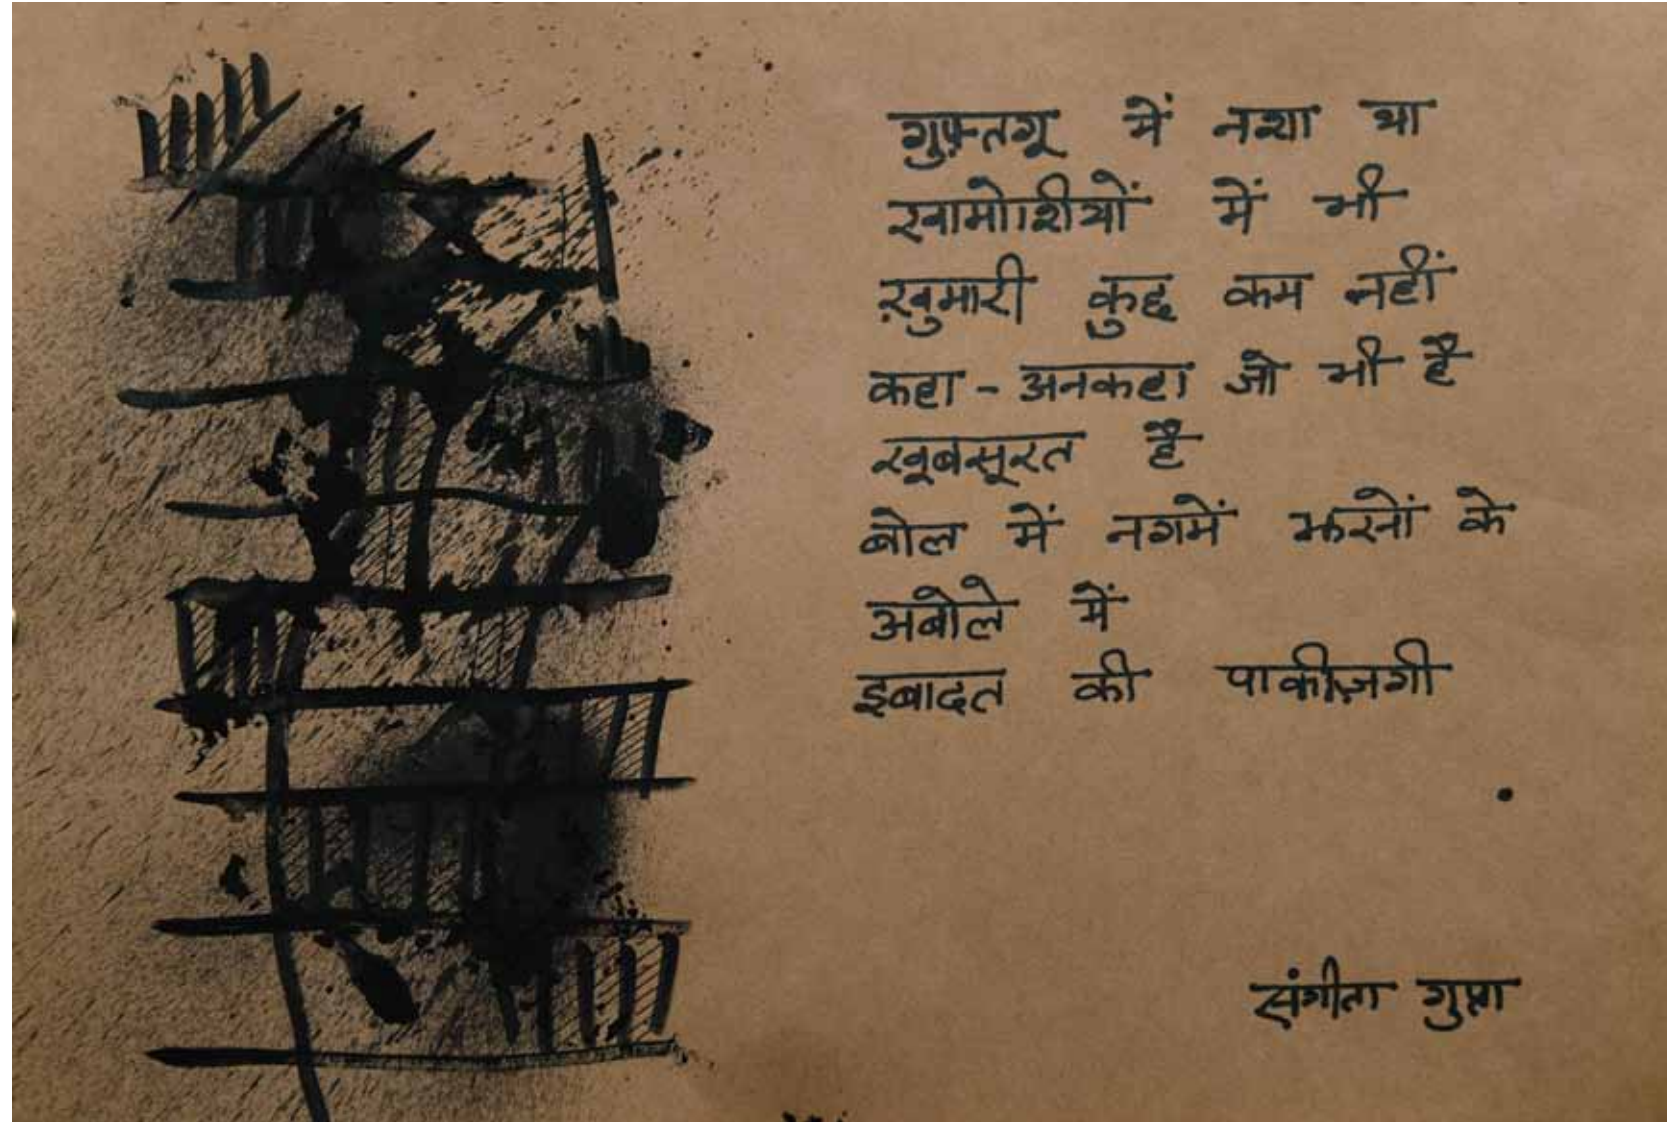 गुफ़्तगू में नशा था
खामोशीयों में भी
ख़ुमारी कुछ कम नहीं
कहा - अनकहा जो भी है
खूबसूरत है
बोल में नगमें झरनों के
अबोले में
इबादत की पाकीज़गी
संगीता गुप्ता